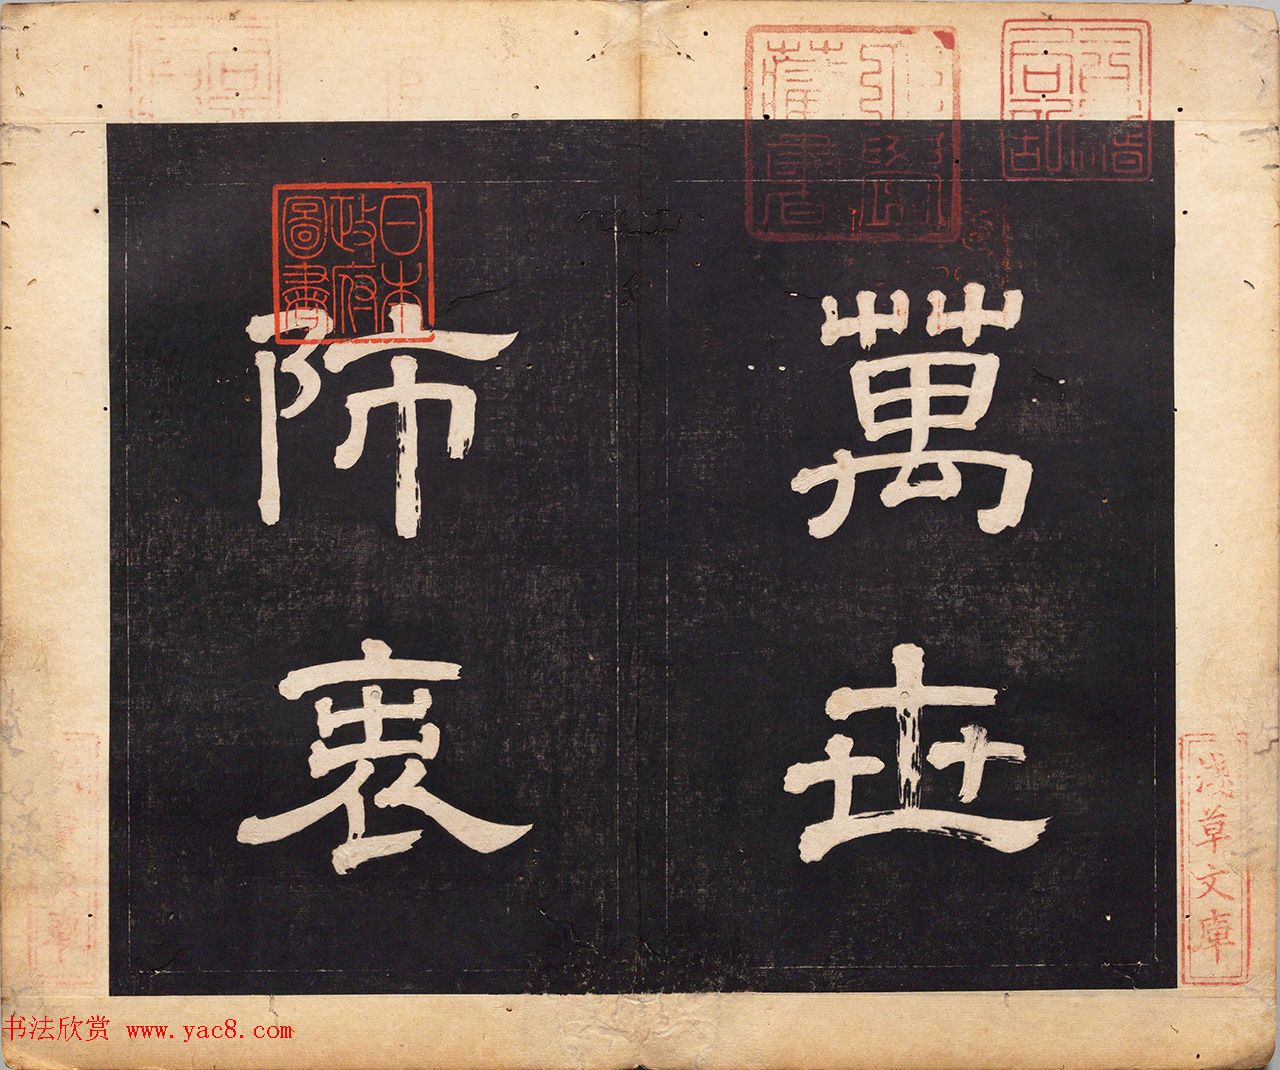 萬世
師表
日本
政府
圖書
淺草文庫
书法欣赏 www.yac8.com